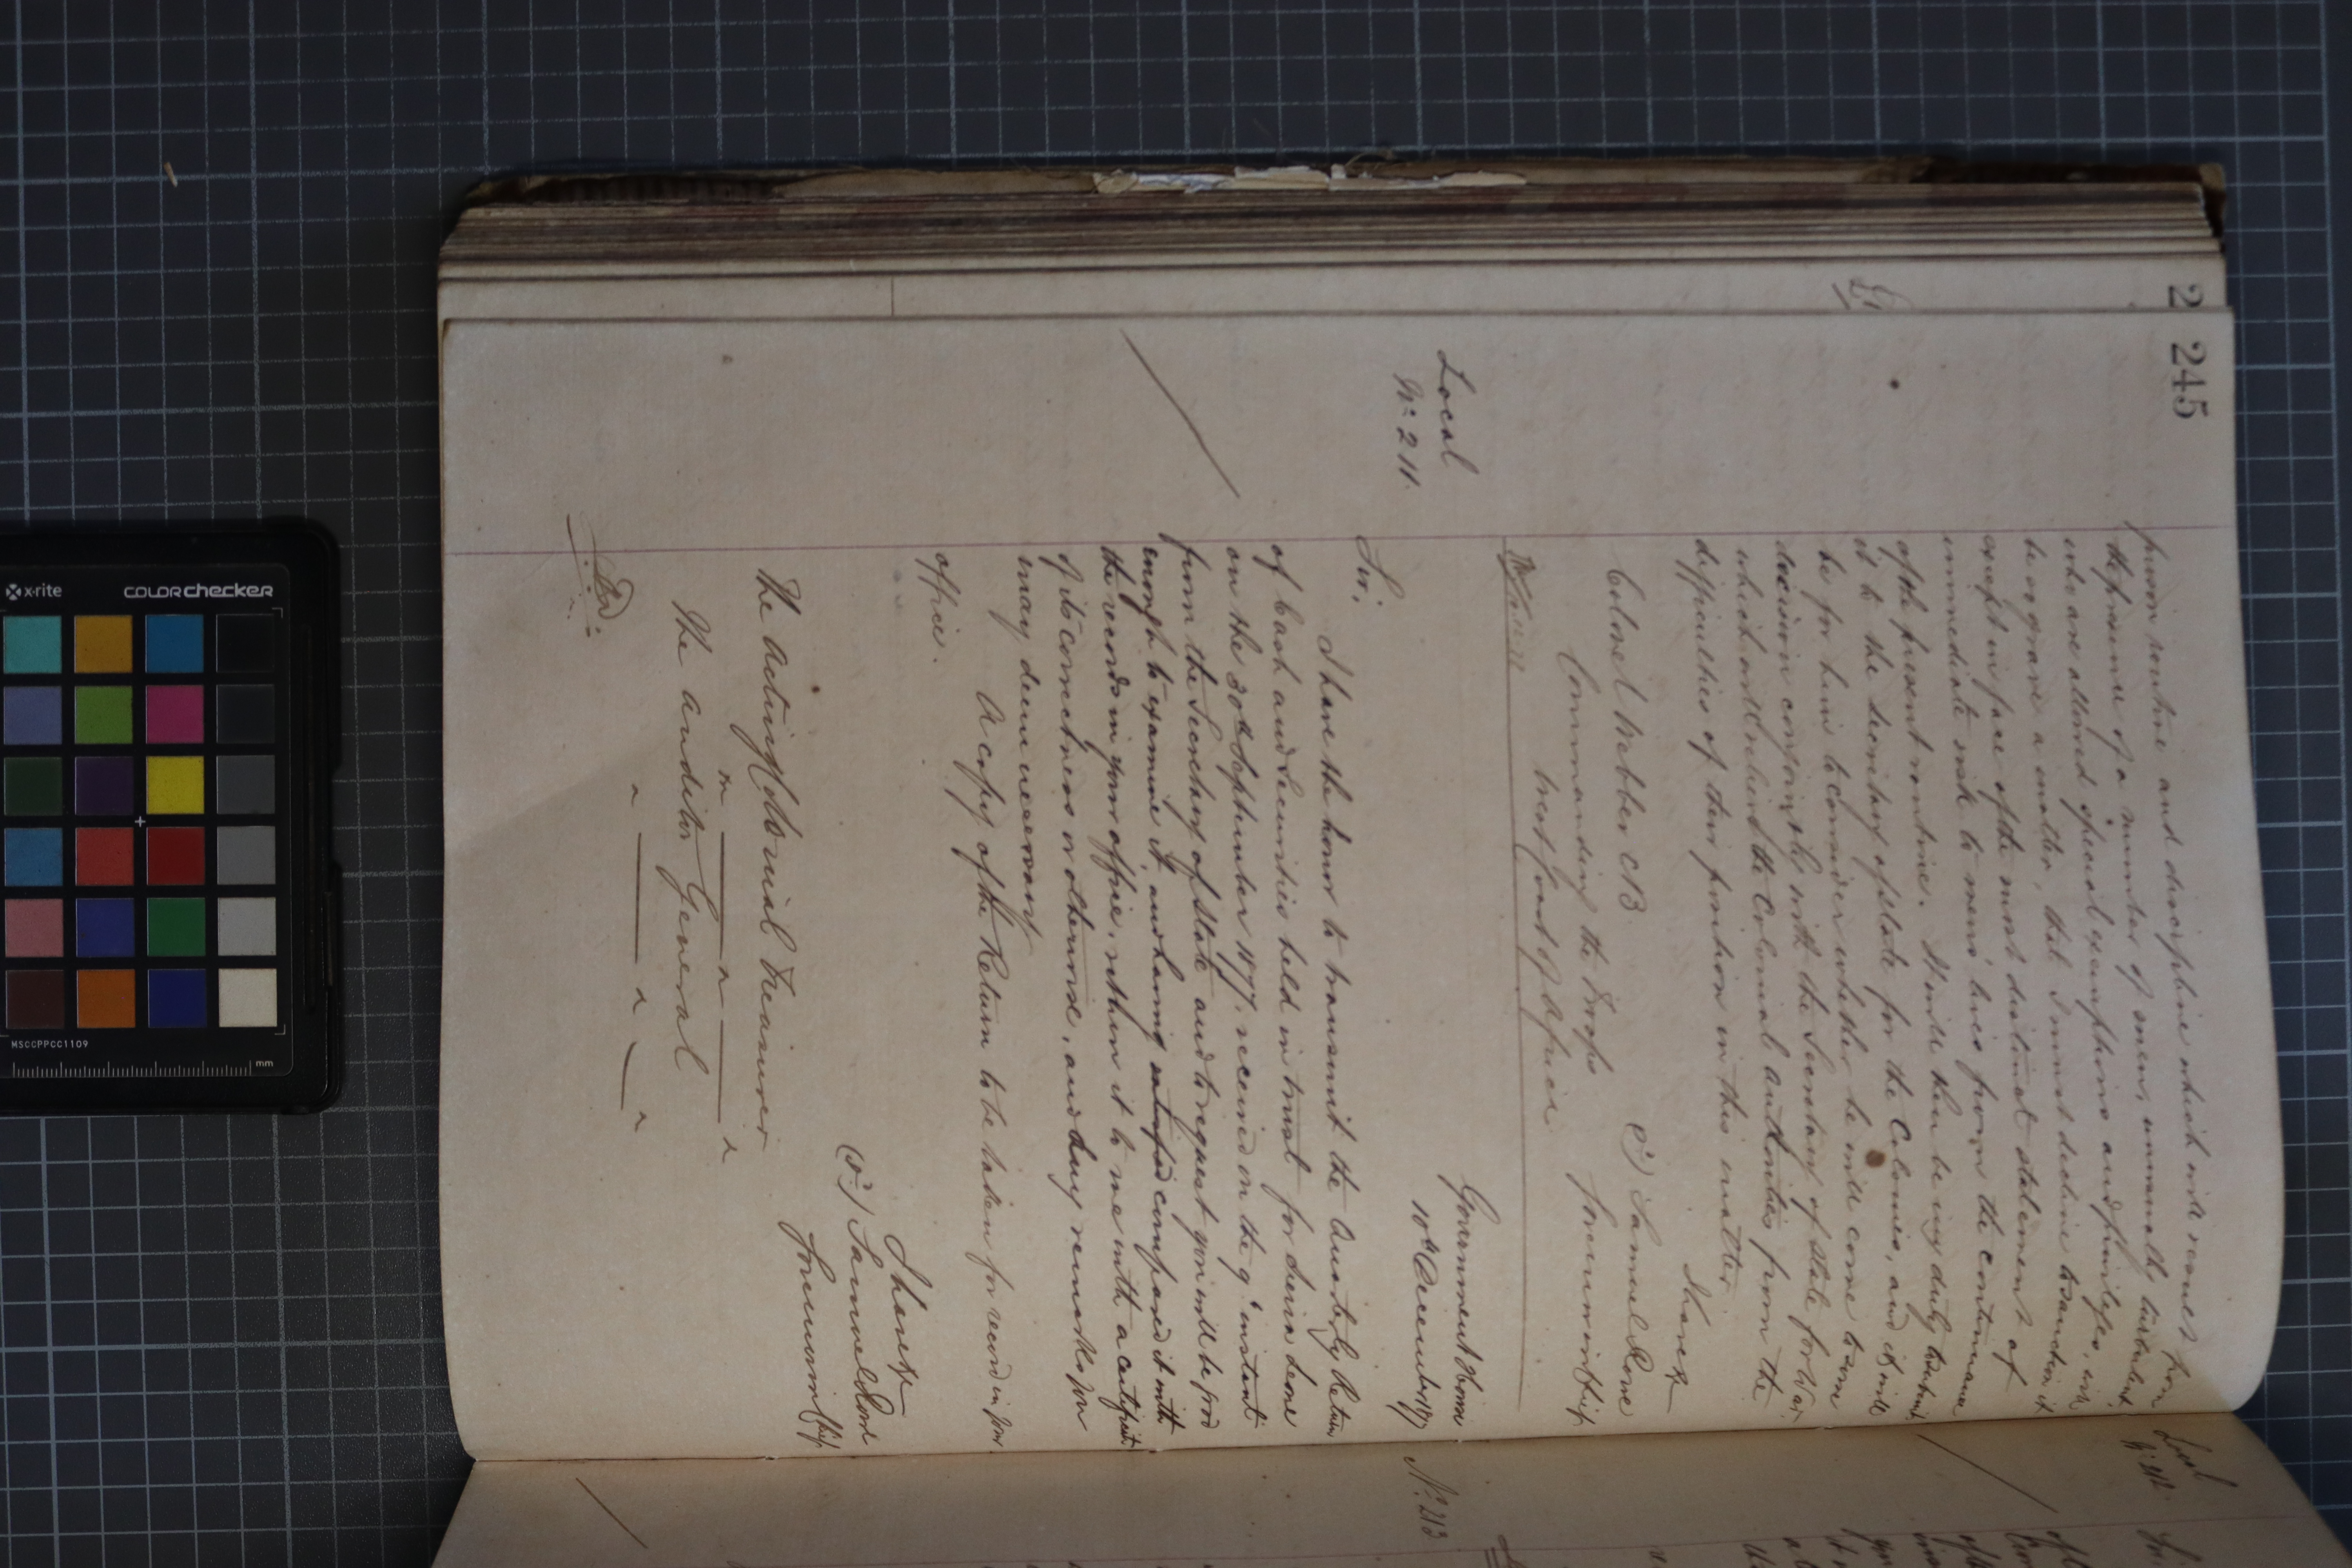 245
person routine and discipline which will result from
the presence of a number of men, unusually turbulent,
who are allowed special exemptions and privileges, will
be so grave a matter, that I must decline to sanction it
except in face of the most distinct statement of
immediate risk to mens' lives from the continuance
of the present routine. It will then be my duty to submit
it to the Secretary of State for the Colonies, and it will
be for him to consider whether he will come to some
decision conjointly with the Secretary of State for War
which will relieve the Colonial authorities from the
difficulties of their position in this matter
I have &c
(s) Samuel Rowe
Governor in Chief
Colonel Webber CB
Commanding the Troops
West Coast of Africa
Local
No. 211.
Government House
10th December 1877
Sir,
I have the honor to transmit the Quarterly Return
of Cash and Securities held in trust for Sierra Leone
on the 30th September 1877, received on the 9th instant
from the Secretary of State and to request you will be good
enough to examine it, and having compared it with
the records in your office, return it to me with a certificate
of its correctness or otherwise, and any remarks you
may deem necessary
A copy of the Return to be taken for record in your
office.
I have &c
(s) Samuel Rowe
Governor in Chief
The Acting Colonial Treasurer
The Auditor General
Local
No. 212.
No. 213